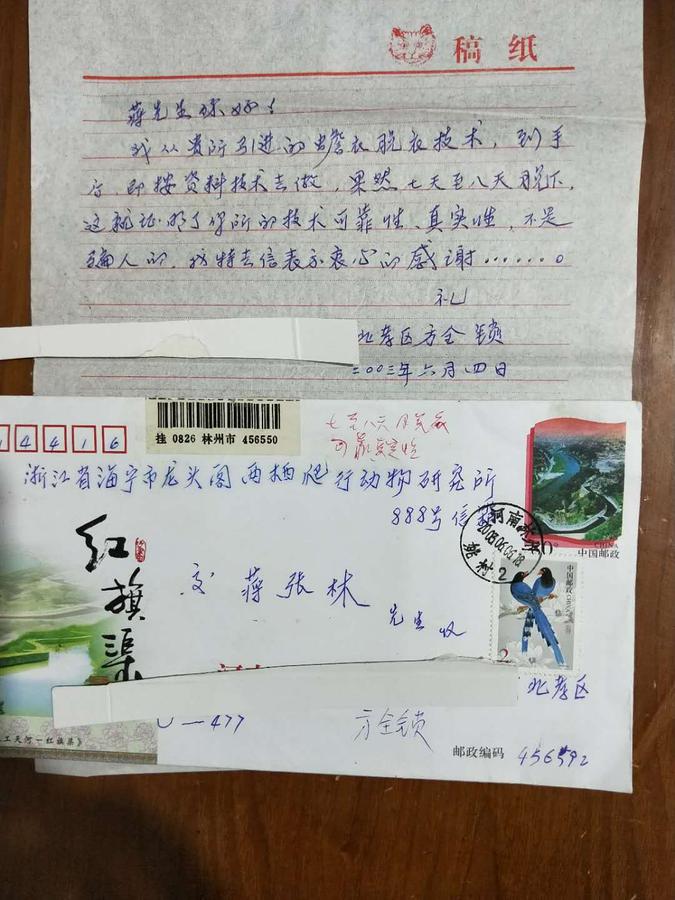 稿纸
蒋先生你好！
我从贵所引进的蟾衣脱衣技术，到手
后，即按资料技术去做，果然七天至八天脱下，
这就证明了你所的技术可靠性、真实性，不是
骗人的，我特去信表示衷心的感谢……。
礼
北孝区方全锁
二00三年六月四日
14416
挂 0826 林州市 456550
七至八天脱衣
可靠
浙江省海宁市龙头阁两栖爬行动物研究所
888号信箱
中国邮政
CHINA
河南
2003.06.05.18
2
中国邮政
CHINA
2
红旗渠
交蒋张林
先生收
北孝区
U—477
方全锁
工天河—红旗渠》
邮政编码 456592